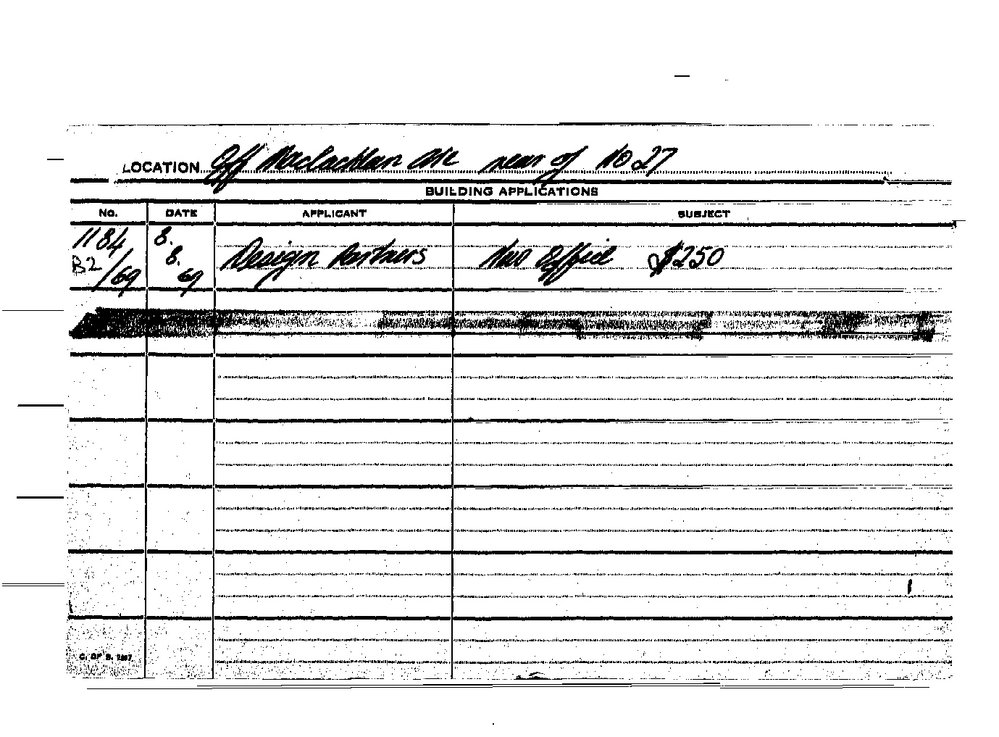 LOCATION Off Maclachlan Ave rear of No 27
BUILDING APPLICATIONS
No. DATE APPLICANT SUBJECT
1184 8.
B2 8. Design Partners New Office $250
/69 69